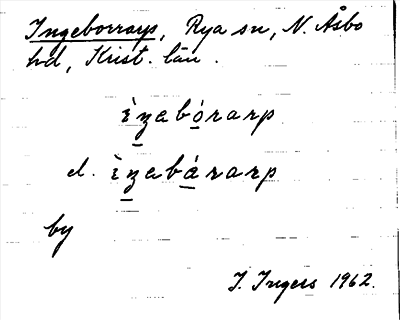 Ingeborrarp, Rya sn, N. Åsbo
hd, Krist. län.
ìʒabórarp
el. ìʒabárarp
by
I. Ingers 1962.